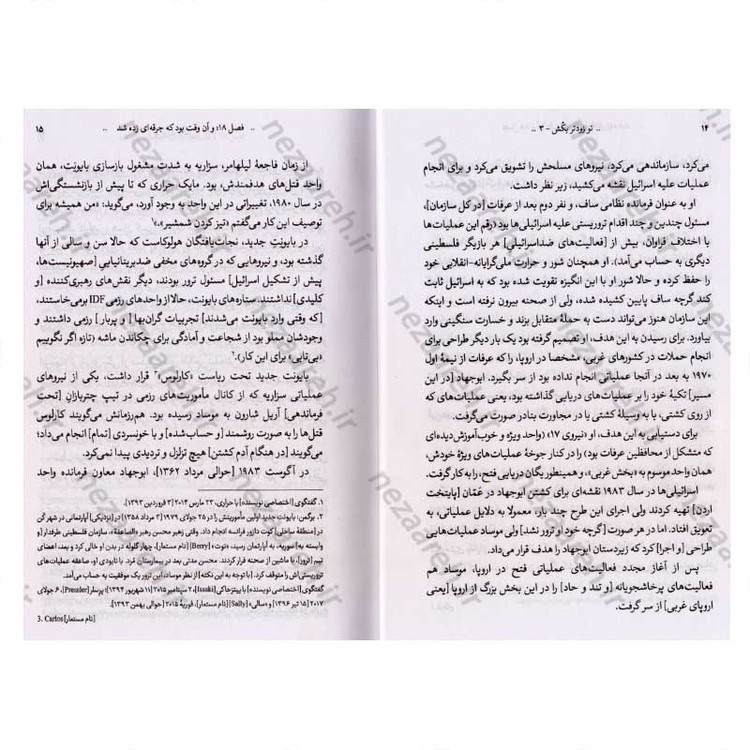 ۱۴
.. تو زودتر بکُش - ۳ ..
می‌کرد، سازماندهی می‌کرد، نیروهای مسلحش را تشویق می‌کرد و برای انجام
عملیات علیه اسرائیل نقشه می‌کشید، زیر نظر داشت.
او به عنوان فرمانده نظامی ساف، و نفر دوم بعد از عرفات [در کل سازمان]،
مسئول چندین و چند اقدام تروریستی علیه اسرائیلی‌ها بود (رقم این عملیات‌ها
با اختلاف فراوان، بیش از [فعالیت‌های ضداسرائیلیِ] هر بازیگر فلسطینی
دیگری به حساب می‌آمد). او همچنان شور و حرارت ملی‌گرایانه-انقلابی خود
را حفظ کرده و حالا شور او با این انگیزه تقویت شده بود که به اسرائیل ثابت
کند گرچه ساف پایین کشیده شده، ولی از صحنه بیرون نرفته است و اینکه
این سازمان هنوز می‌تواند دست به حملهٔ متقابل بزند و خسارت سنگینی وارد
بیاورد. برای رسیدن به این هدف، او تصمیم گرفته بود یک بار دیگر طراحی برای
انجام حملات در کشورهای غربی، مشخصا در اروپا، را که عرفات از نیمهٔ اول
۱۹۷۰ به بعد در آنجا عملیاتی انجام نداده بود از سر بگیرد. ابوجهاد [در این
مسیر] تکیهٔ خود را بر عملیات‌های دریایی گذاشته بود، یعنی عملیات‌های که
از روی کشتی، یا به وسیلهٔ کشتی یا در مجاورت بنادر صورت می‌گرفت.
برای دستیابی به این هدف، او «نیروی ۱۷» (واحد ویژه و خوب‌آموزش‌دیده‌ای
که متشکل از محافظین عرفات بود) را در کنار جوخهٔ عملیات‌های ویژهٔ خودش،
همان واحد موسوم به «بخش غربی»، و همینطور یگان دریایی فتح، را به کار گرفت.
اسرائیلی‌ها در سال ۱۹۸۳ نقشه‌ای برای کشتن ابوجهاد در عَمّان [پایتخت
اردن] تهیه کردند ولی اجرای این طرح چند بار، معمولا به دلایل عملیاتی، به
تعویق افتاد. اما در هر صورت [گرچه خود او ترور نشد] ولی موساد عملیات‌هایی
طراحی [و اجرا] کرد که زیردستان ابوجهاد را هدف قرار می‌داد.
پس از آغاز مجدد فعالیت‌های عملیاتی فتح در اروپا، موساد هم
فعالیت‌های پرخاشجویانه [و تند و حاد] را در این بخش بزرگ از اروپا [یعنی
اروپای غربی] از سر گرفت.
.. فصل ۱۸؛ و آن وقت بود که جرقه‌ای زده شد ..
۱۵
از زمان فاجعهٔ لیلهامر، سزاریه به شدت مشغول بازسازی بایونِت، همان
واحد قتل‌های هدفمندش، بود. مایک حراری که تا پیش از بازنشستگی‌اش
در سال ۱۹۸۰، تغییراتی در این واحد به وجود آورد، می‌گوید: «من همیشه برای
توصیف این کار می‌گفتم «تیز کردن شمشیر».»۱
در بایونتِ جدید، نجات‌یافتگان هولوکاست که حالا سن و سالی از آنها
گذشته بود، و نیروهایی که در گروه‌های مخفی ضدبریتانیایی [صهیونیست‌ها،
پیش از تشکیل اسرائیل] مسئول ترور بودند، دیگر نقش‌های رهبری‌کننده [و
کلیدی] نداشتند. ستاره‌های بایونت، حالا از واحدهای رزمی IDF برمی‌خاستند،
[که وقتی وارد بایونت می‌شدند] تجربیات گران‌بها [و پربار] رزمی داشتند و
وجودشان مملو بود از شجاعت و آمادگی برای چکاندن ماشه (تازه اگر نگوییم
«بی‌تابی» برای این کار).۲
بایونت جدید تحت ریاست «کارلوس»۳ قرار داشت، یکی از نیروهای
عملیاتی سزاریه که از کانال مأموریت‌های رزمی در تیپ چتربازانِ [تحت
فرماندهی] آریل شارون به موساد رسیده بود. هم‌رزمانش می‌گویند کارلوس
قتل‌ها را به صورت روشمند [و حساب‌شده] و با خونسردی [تمام] انجام می‌داد؛
می‌گویند [در هنگام آدم کشتن] هیچ تزلزل و تردیدی پیدا نمی‌کرد.
در آگوست ۱۹۸۳ [حوالی مرداد ۱۳۶۲]، ابوجهاد معاون فرمانده واحد
۱. گفتگوی [اختصاصی نویسنده] با حراری، ۲۳ مارس ۲۰۱۴ [۳ فروردین ۱۳۹۳].
۲. برگمن: بایونت جدید اولین مأموریتش را در ۲۵ جولای ۱۹۷۹ [۳ مرداد ۱۳۵۸ در [نزدیکی] آپارتمانی در شهر کن
در [منطقهٔ ساحلی] کوت دازور فرانسه انجام داد، وقتی زهیر محسن رهبر «الصاعقة»، سازمان فلسطینی طرفدار [و
وابسته به] سوریه، به آپارتمان رسید، «توت» [Berry] [نام مستعار]، چهار گلوله در بدن او خالی کرد و بعد، اعضای
تیم [ترور]، با آرامش از صحنه فرار کردند. محسن مدتی بعد در بیمارستان مُرد. با نابودی او، صاعقه عملیات‌های
تروریستی‌اش را متوقف کرد. [با توجه به این نکته] از نظر موساد، این ترور یک موفقیت به حساب می‌آمد.
گفتگوی [اختصاصی نویسنده] با [Issaki]، ۲ سپتامبر ۲۰۱۵ [۱۱ شهریور ۱۳۹۴]؛ پرسلر [Pressler]، ۶ جولای
۲۰۱۷ [۱۵ تیر ۱۳۹۶] و «سالی» [Sally] [نام مستعار]، فوریهٔ ۲۰۱۵ [حوالی بهمن ۱۳۹۳].
3. Carlos[نام مستعار]
nezareh.ir